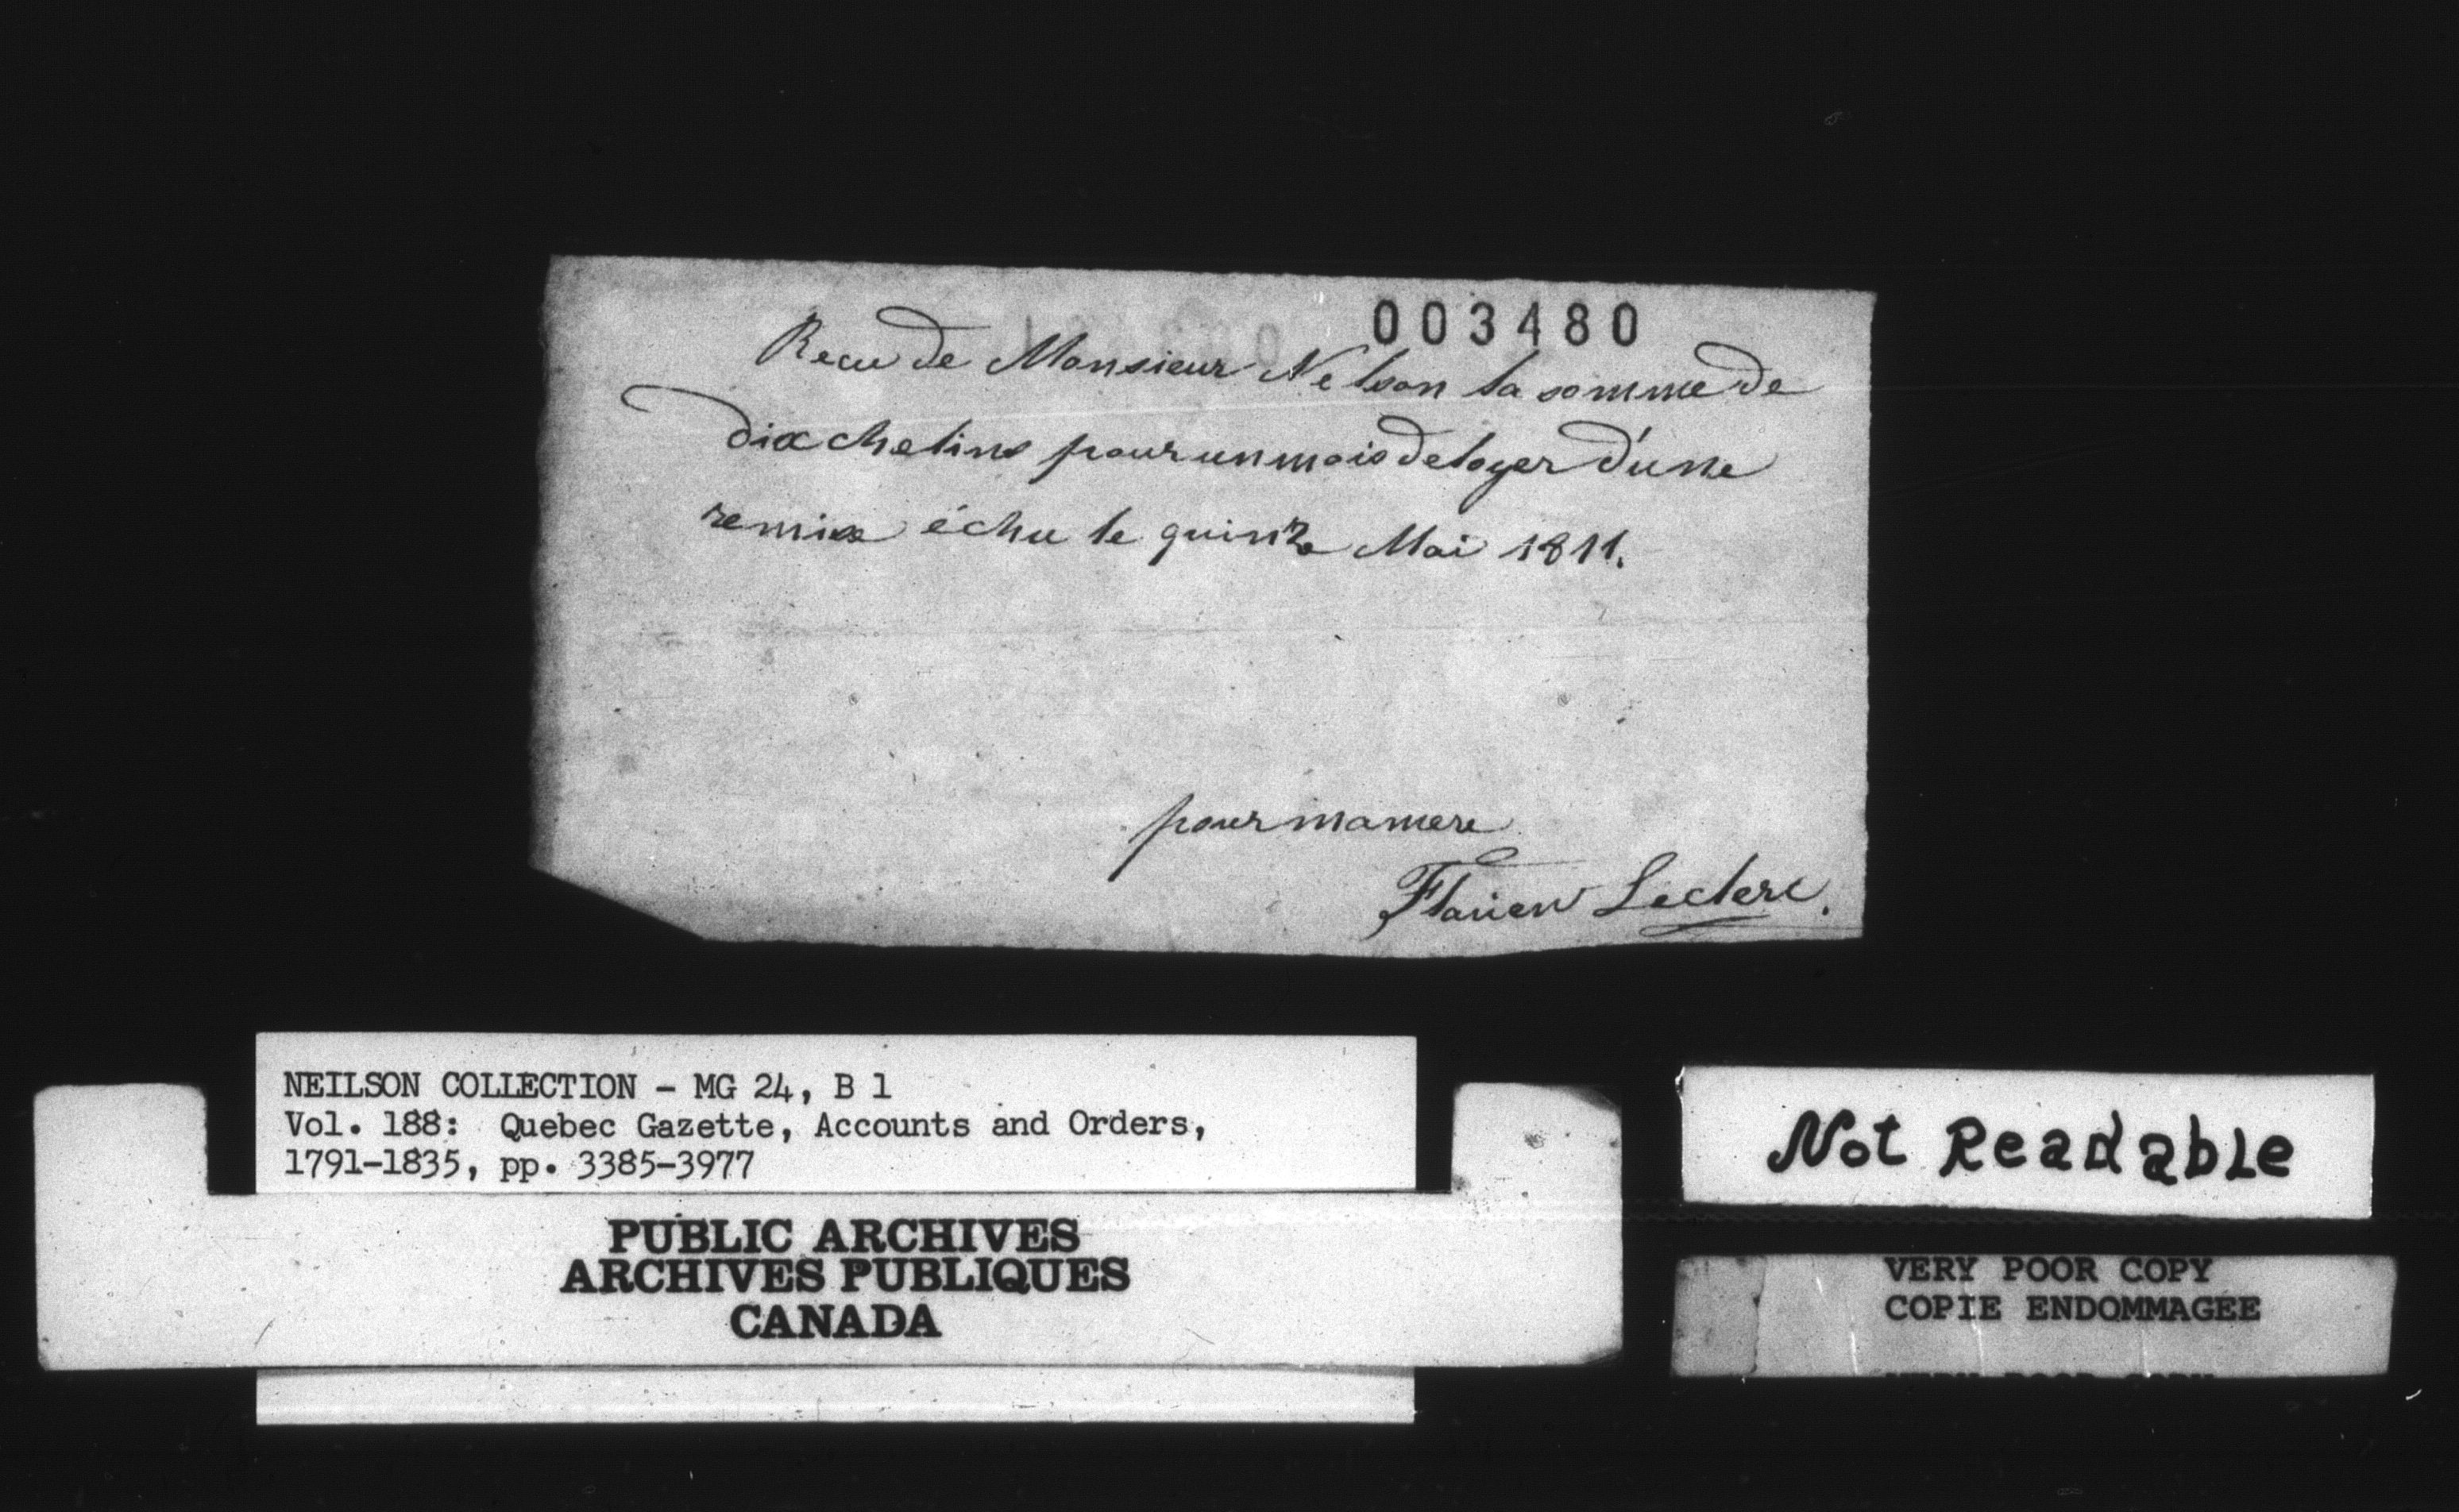 003480
Recu de Monsieur Nelson la somme de
dix chelins pour un mois de loyer d'une
remise échu le quinze Mai 1811.
pour ma mere
Flavien Leclerc.
NEILSON COLLECTION - MG 24, B 1
Vol. 188: Quebec Gazette, Accounts and Orders,
1791-1835, pp. 3385-3977
PUBLIC ARCHIVES
ARCHIVES PUBLIQUES
CANADA
Not Readable
VERY POOR COPY
COPIE ENDOMMAGEE